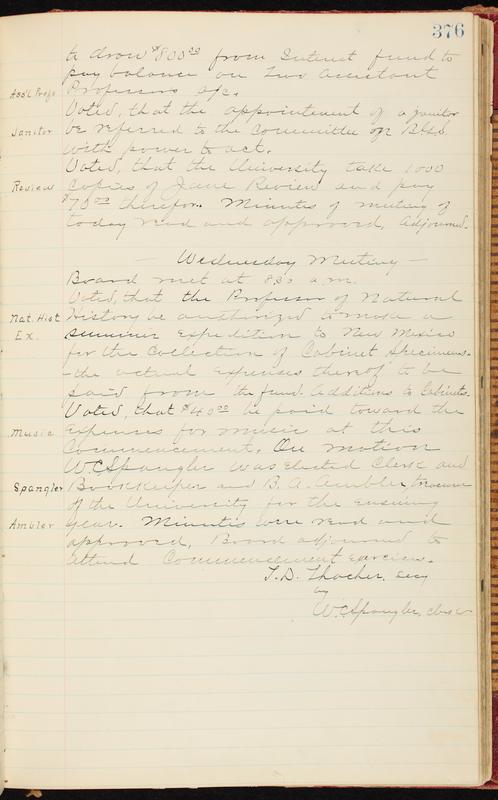 376
to draw $800.00 from Interest fund to
pay balance on Two Assistant
Ass't Profs Professors a/c.
Voted, that the appointment of a janitor
Janitor be referred to the Committee on Bldg
with power to act.
Voted, that the University take 1000
Review Copies of June Review and pay
$75.00 therefor. Minutes of meeting of
today read and approved, adjourned.
— Wednesday Meeting —
Board met at 8.30 a.m.
Voted, that the Professor of Natural
Nat. Hist History be authorized to make a
Ex. summer expedition to New Mexico
for the Collection of Cabinet Specimens.
- the actual expenses thereof to be
paid from the fund. Additions to Cabinets.
Voted, that $40.00 be paid toward the
Music expenses for music at this
Commencement. On motion
W C Spangler was elected Clerk and
Spangler Bookkeeper and B. A. Ambler, treasurer
of the University for the ensuing
Ambler year. Minutes were read and
approved, Board adjourned to
attend Commencement exercises.
T. D. Thacher, Secy
by
W.C. Spangler, clerk